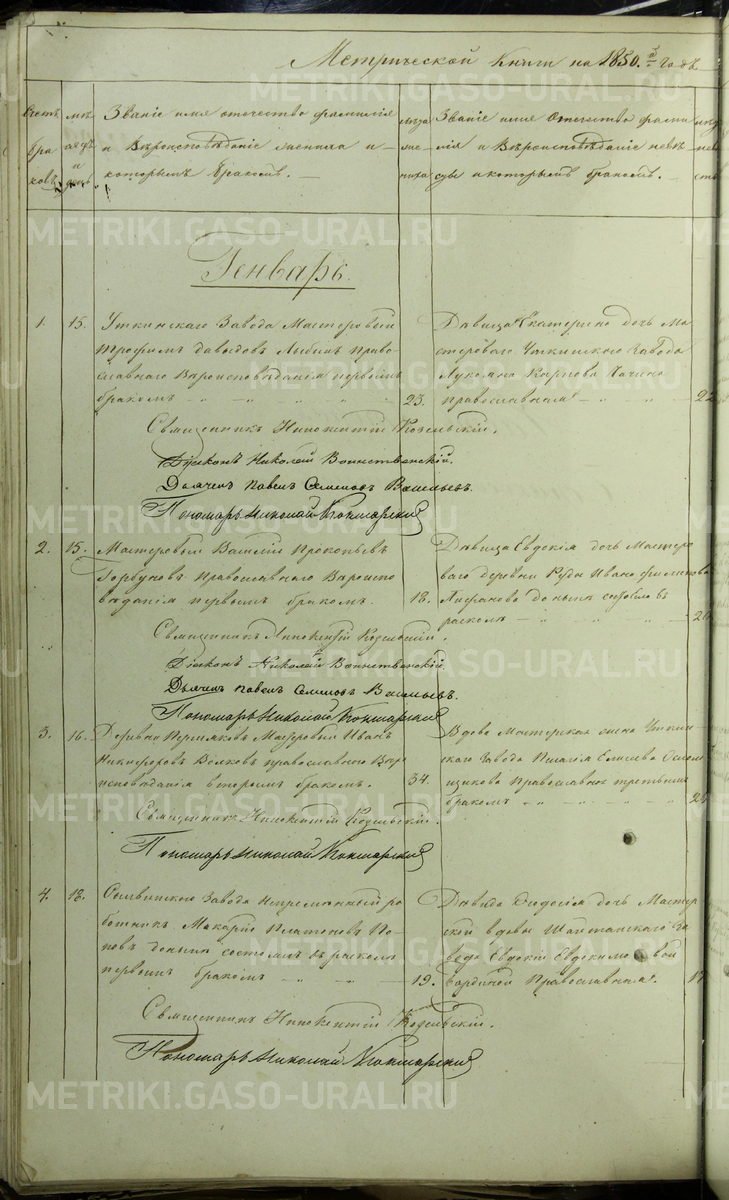 Метрической Книги на 1850.й годъ
Счетъ браковъ
мѣсяцъ и день
Званіе имя отечество фамилія
и Вѣроисповѣданіе жениха и
которымъ бракомъ.
лѣта жениха
Званіе имя Отечество фами
лія и Вѣроисповѣданіе невѣ
сты и которымъ бракомъ.
Генварь.
1. 15. Уткинскаго Завода Мастеровый
Трофимъ Давыдовъ Право
славнаго Вѣроисповѣданія первымъ
бракомъ 23.
Дѣвица Екатерина дочь Ма
стероваго Уткинскаго Завода
Карпова
православная 22
Священникъ Иннокентій Козельскій.
Діаконъ Николай Воинственскій.
Дьячекъ Павелъ Семеновъ Васильевъ.
Пономарь Николай
2. 15. Мастеровый Василій Прокопьевъ
Горбуновъ Православнаго Вѣроиспо
вѣданія первымъ бракомъ. 18.
Дѣвица Евдокія дочь Мастеро
ваго деревни Ивана
донынѣ въ
расколѣ
Священникъ Иннокентій Козельскій.
Діаконъ Николай Воинственскій.
Дьячекъ Павелъ Семеновъ Васильевъ.
Пономарь Николай
3. 16. Деревни Пермяковъ Мастеровый Иванъ
Никифоровъ Волковъ православнаго Вѣро
исповѣданія вторымъ бракомъ. 34.
Вдова Мастерская жена Уткин
скаго Завода Пелагія
Православное третьимъ
бракомъ
Священникъ Иннокентій Козельскій.
Пономарь Николай
4. 18. Завода Непремѣнный ра
ботникъ Макарій Платоновъ По
повъ донынѣ состоялъ въ расколѣ
первымъ бракомъ 19.
Дѣвица Федосія дочь Мастер
ской вдовы Шайтанскаго За
вода Евдокіи Евдокимовой
Православная. 17
Священникъ Иннокентій Козельскій.
Пономарь Николай
METRIKI.GASO-URAL.RU